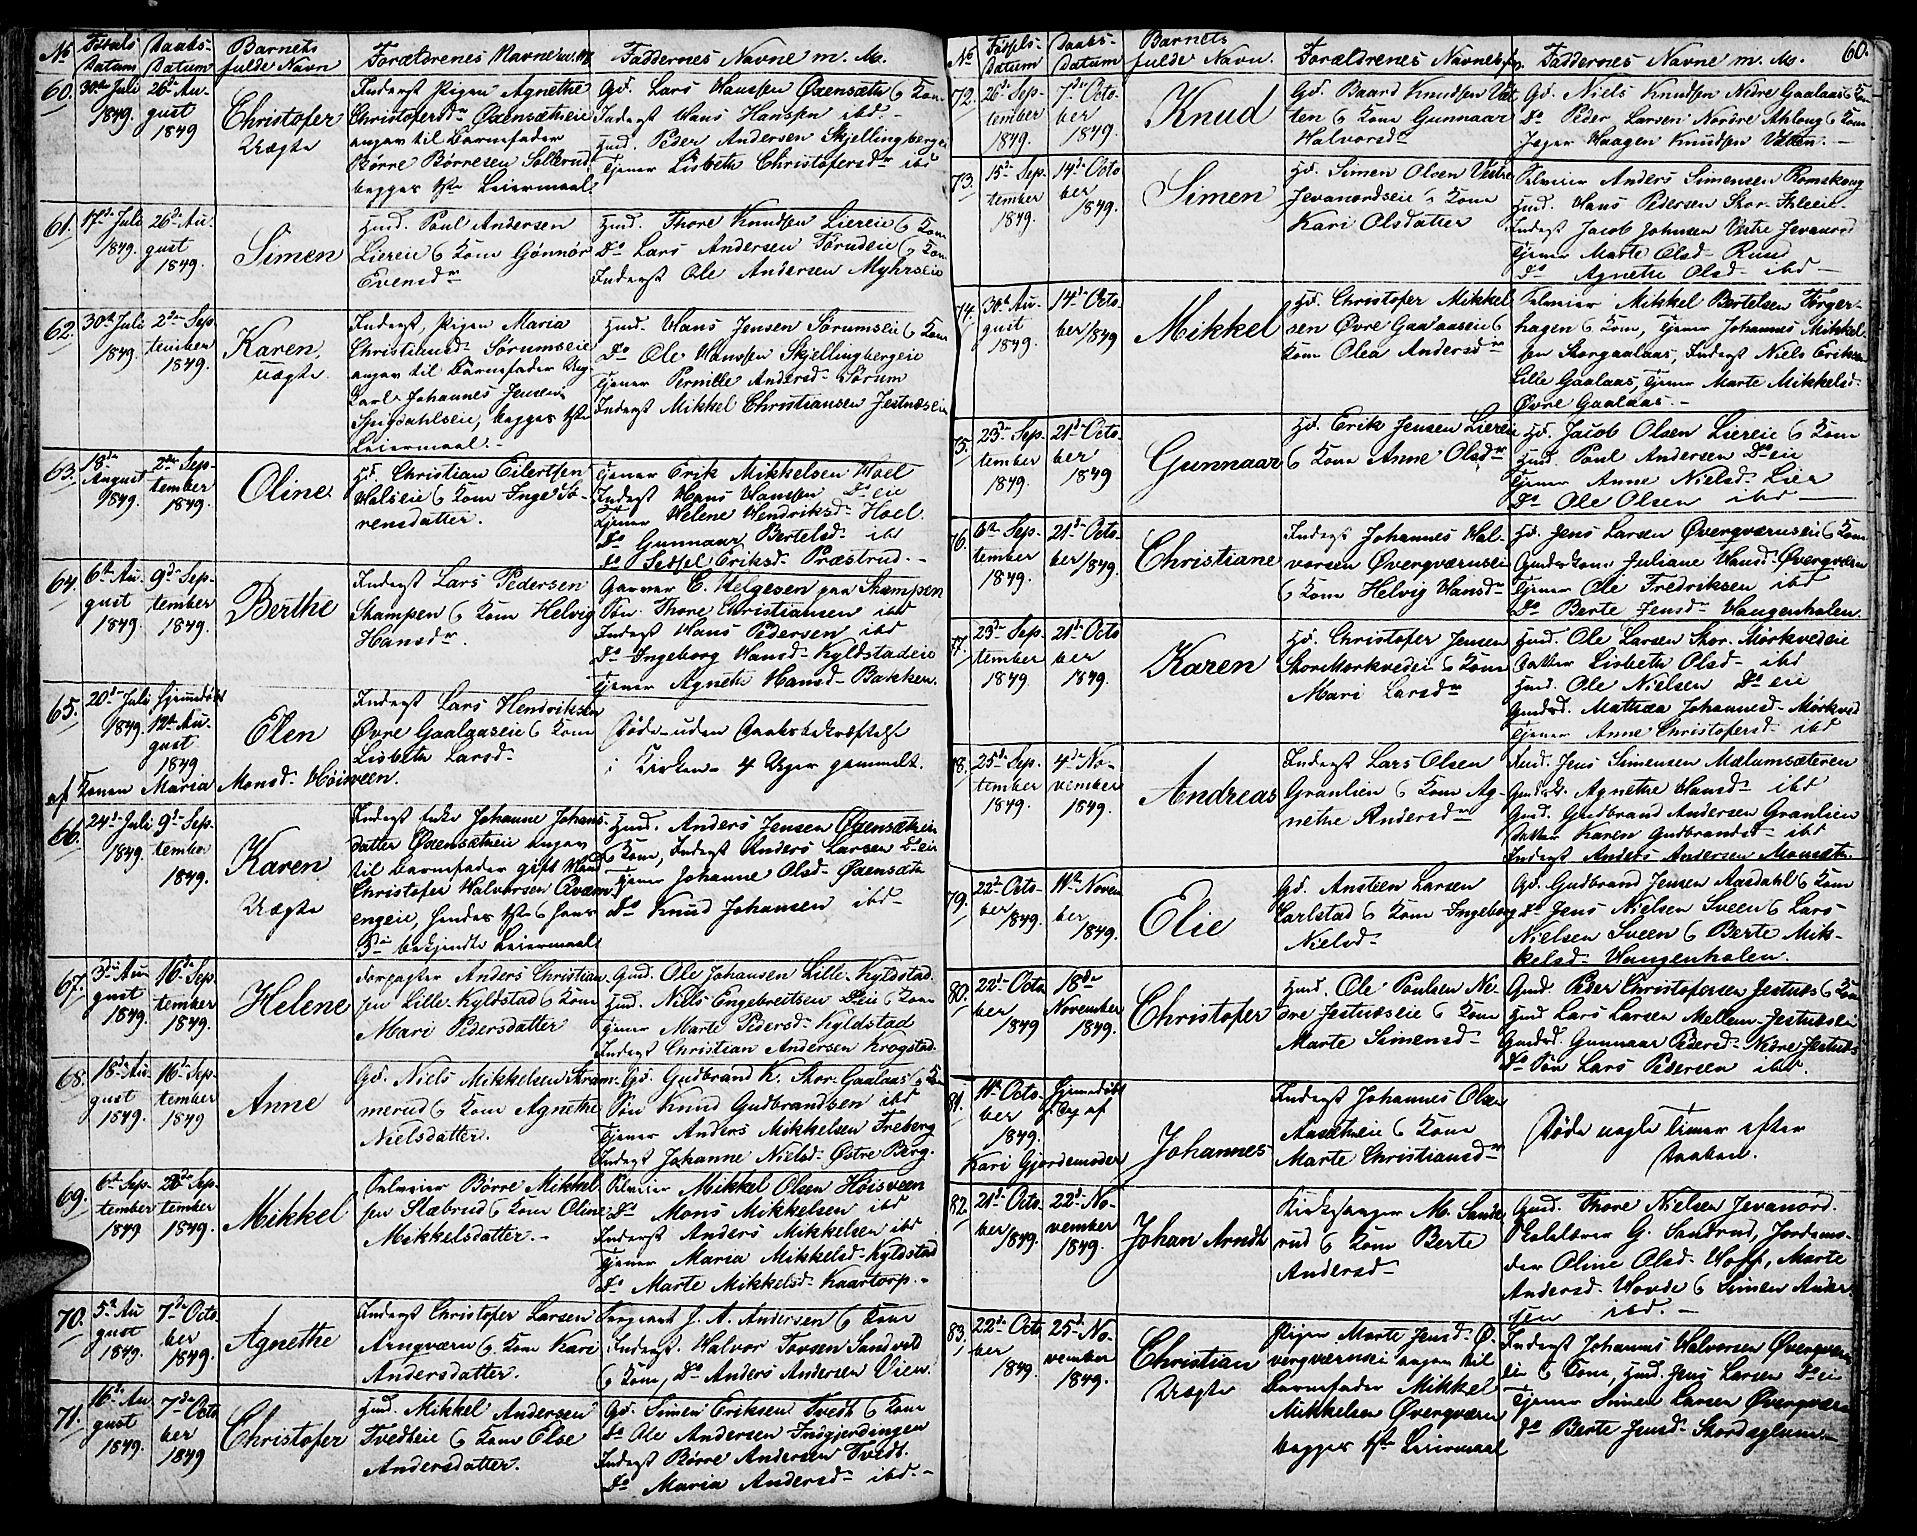 No Fødsels- Datum Daabs- Datum Barnets fulde Navn Forældrenes Navne m. M. Faddernes Navne m. M.
60. 30te Juli 1849. 26de August 1849 Christofer Uægte
Inderst Pigen Agnethe
Christofersdr Oxensætheie
angav til Barnefader
Børre Børresen Sollerud
begges 1ste Leiermaal.
Gd. Lars Hanssen Oxensæth & Kone
Inderst Hans Hansen ibd.
Hmd. Peder Andersen Skjellingbergeie
Tjener Lisbeth Christofersdr ibd
61. 17de Juli 1849. 26de August 1849. Simen
Hmd. Poul Andersen
Liereie & Kone Gønnor
Evensdr
Hmd. Thore Knudsen Liereie & Kone
Do Lars Andersen Torudeie & Kone
Inderst Ole Andersen Myhrseie
62. 30te Juli 1849. 2de September 1849. Karen, uægte
Inderst, Pigen Maria
Christiansd. Sørumseie
angav til Barnefader Ung-
karl Johannes Jensen
Spigdahlseie, begges 1ste
Leiermaal.
Hmd. Hans Jensen Sørumseie & Kone
Do Ole Hanssen Skjellingbergeie
Tjener Pernille Andersd. Sørum
Inderst Mikkel Christiansen Jestnæseie
63. 18de August 1849. 2den September 1849. Oline
Hd. Christian Eilertsen
Halseie & Kone Inge Sø-
rensdatter.
Tjener Erik Mikkelsen Hoel
Inderst Hans Hansen Do eie
Tjener Helene Hendriksd. Hoel
Do Gunnaar Bertelsd. ibd
Do Eriksd. Præstrud.
64. 6te August 1849. 9de September 1849. Berthe
Inderst Lars Pedersen
Stampen & Kone Helvig
Hansdr
Garver C. Helgesen paa Stampen
Søn Thore Christiansen ibd
Inderst Hans Pedersen ibd
Do Ingeborg Hansd. Kyldstadeie
Tjener Agnethe Hansd. Bakken.
65. 20de Juli 1849. Hjemdøbt 12te August 1849 Elen
Inderst Lars Hendriksen
Øvre Gaalaaseie & Kone
Lisbeth Larsd.
Døde uden Daabsbekræftelse
i Kirken 4 Uger gammelt.
af Konen Maria Monsd. Høisveen.
66. 24de Juli 1849. 9de September 1849. Karen Uægte
Inderst Enke Johanne Johans-
datter Oxensætheie angav
til Barnefader gift Mand
Christofer Halvorsen
engeie, hendes 1ste & hans
3die bekjendte Leiermaal
Hmd. Anders Jensen Oxensætheie
& Kone, Inderst Anders Larsen Do eie
Tjener Johanne Olsd. Oxensæth
Do Knud Johansen ibd
67. 3die August 1849. 16de September 1849. Helene
Forpagter Anders Christian-
sen Lille-Kyldstad & Kone
Mari Pedersdatter
Gmd. Ole Johansen Lille-Kyldstad.
Hmd. Niels Engebretsen Do eie & Kone
Tjener Marte Pedersd. Kyldstad
Inderst Christian Andersen Krogstad.
68. 18de August 1849. 16de September 1849 Anne
Gd. Niels Mikkelsen Kram-
merud & Kone Agnethe
Nielsdatter.
Gd. Gudbrand K. Stor-Gaalaas & Kone
Søn Knud Gudbrandsen ibd
Tjener Anders Mikkelsen Freberg
Inderst Johanne Nielsd. Østre Berg.
69. 6te September 1849 September 1849. Mikkel
Selveier Børre Mikkel-
sen Slæbrud & Kone Oline
Mikkelsdatter.
Selveier Mikkel Olsen Høisveen
Do Mons Mikkelsen ibd
Inderst Anders Mikkelsen ibd
Tjener Maria Mikkelsd. Kyldstad
Do Marte Mikkelsd. Kaartorp.
70. 5te August 1849. 7de October 1849. Agnethe
Inderst Christofer Larsen
Arngværn & Kone Kari
Andersdatter.
Sergeant J. A. Andersen & Kone
Inderst Halvor Torsen Sandvold
& Kone, Do Anders Andersen Vien.
71. 16de August 1849. 7de October 1849 Christofer
Hmd. Mikkel Andersen
Tvedteie & Kone Else
Andersdatter.
Gd. Simen Eriksen Tvedt & Kone
Do Ole Andersen Indgjerdingen
Inderst Børre Andersen Tvedt.
Do Maria Andersd. ibd.
No Fødsels- Datum Daabs- Datum Barnets fulde Navn. Forældrenes Navne Faddernes Navne m. M. 60.
72. 26de September 1849. 7de October 1849. Knud
Gd. Baard Knudsen Vet-
ten & Kone Gunnaar
Halvorsdr
Gd. Niels Knudsen Nedre Gaalaas & Kone
Do Peder Larsen Nordre Ahlong & Kone
Jæger Haagen Knudsen Vetten.
73. 15de September 1849. 14de October 1849. Simen
Hd. Simen Olsen Vestre
Jevanordseie & Kone
Kari Olsdatter
Selveier Anders Simensen Romskoug
Hmd. Hans Pedersen Stor-
Inderst Jacob Johnsen Vestre Jevanord
Tjener Marte Olsd. Ruud
Do Agnethe Olsd. ibd
74. 30te August 1849. 14de October 1849 Mikkel
Hd. Christofer Mikkel-
sen Øvre Gaalaaseie &
Kone Olea Andersdr
Selveier Mikkel Bertelsen Torger-
hagen & Kone, Tjener Johannes Mikkel-
sen Storgaalaas, Inderst Niels Eriksen
Lille Gaalaas, Tjener Marte Mikkelsd.
Øvre Gaalaas.
75. 23de September 1849. 21de October 1849 Gunnaar
Hd. Erik Jensen Liereie
& Kone Anne Olsdr
Hd. Jacob Olsen Liereie & Kone
Hmd. Poul Andersen Do eie
Tjener Anne Nielsd. Lier
Do Ole Olsen ibd
76. 6te September 1849. 21de October 1849. Christiane
Inderst Johannes Hal-
vorsen Øvergværnseie
& Kone Helvig Hansdr
Hd. Jens Larsen Øvergværnseie & Kone
Juliane Hansd. Øvergværn
Tjener Ole Fredriksen ibd
Do Berte Jensdr Hangenholen.
77. 23de September 1849 21de October 1849. Karen
Hd. Christofer Jensen
Stor-Mørkvedeie & Kone
Mari Larsdr
Hmd. Ole Larsen Stor-Mørkvedeie
Datter Lisbeth Olsd. ibd
Hmd. Ole Nielsen Do eie
Mathea Johannesd. Mørkved
Tjener Anne Christofersd. ibd
78. 25de September 1849. 4de November 1849. Andreas
Inderst Lars Olsen
Granlien & Kone Ag-
nethe Andersdr
Hmd. Jens Simensen Mælumsæteren
Agnethe Hansd. ibd
Gmd. Gudbrand Andersen Granlien
Datter Karen Gudbrandsd. ibd
Inderst Anders Andersen
79. 22de October 1849. 11te November 1849. Elie
Gd. Anstien Larsen
Carlstad & Kone Ingeborg
Nielsd.
Gd. Gudbrand Jensen Aasdahl & Kone
Do Jens Nielsen Sveen & Lars
Nielsen Sveen & Berte Mik-
kelsd. Hangenholen.
80. 22de October 1849 18de November 1849. Christofer
Hmd. Ole Poulsen Ne-
dre Jestnæseie & Kone
Marte Simensd.
Gmd. Peder Christofersen Jestnæs & Kone
Hmd. Lars Larsen Mellem-Jestnæseie
Gunnaar Pedersd. Nedre Jestnæs
Do Søn Lars Pedersen ibd.
81. 11te October 1849. Hjemdøbt s. Dag af Johannes
Kari Gjordemoder
Inderst Johannes Olsen
Aasætheie & Kone
Marte Christiansdr
Døde nogle Timer efter
Daaben.
82. 21de October 1849. 22de November 1849. Johan Arndt
Kirkesanger M. Sande-
rud & Kone Berte
Andersd.
Gmd. Thore Nielsen Jevanord.
Skolelærer G. Sandrud, Jordemo-
der Oline Olsd. Hoff, Marte
Andersd. Hovde & Simen Ander-
sen ibd.
83. 22de October 1849. 25de November 1849. Christian Uægte
Pigen Marte Jensd. Ø-
vergværnsei angav til
Barnefader Mikkel
Mikkelsen Øvergværn
begges 1ste Leiermaal
Inderst Johannes Halvorsen Øvergværns-
eie & Kone, Hmd. Jens Larsen Do eie
Tjener Simen Larsen Øvergværn
Do Berte Jensd. Skordsglum.